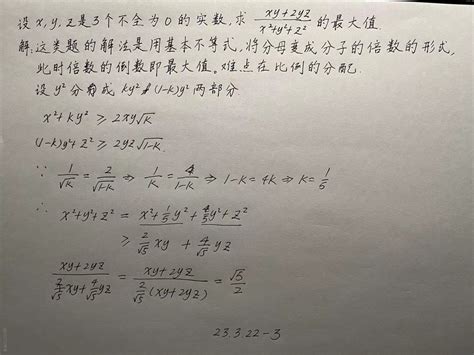 设 x, y, z 是 3 个不全为 0 的实数, 求 (xy+2yz)/(x²+y²+z²) 的最大值.
解: 这类题的解法是用基本不等式, 将分母变成分子的倍数的形式,
此时倍数的倒数即最大值。难点在比例的分配.
设 y² 分成 ky² (1-k)y² 两部分.
x²+ky² ≥ 2xy√k
(1-k)y²+z² ≥ 2yz√(1-k).
∵ 1/√k = 2/√(1-k) ⇒ 1/k = 4/(1-k) ⇒ 1-k = 4k ⇒ k = 1/5
∴ x²+y²+z² = x²+1/5y²+4/5y²+z²
≥ 2/√5 xy + 4/√5 yz
(xy+2yz)/(2/√5 xy+4/√5 yz) = (xy+2yz)/(2/√5 (xy+2yz)) = √5/2
23.3.22-3